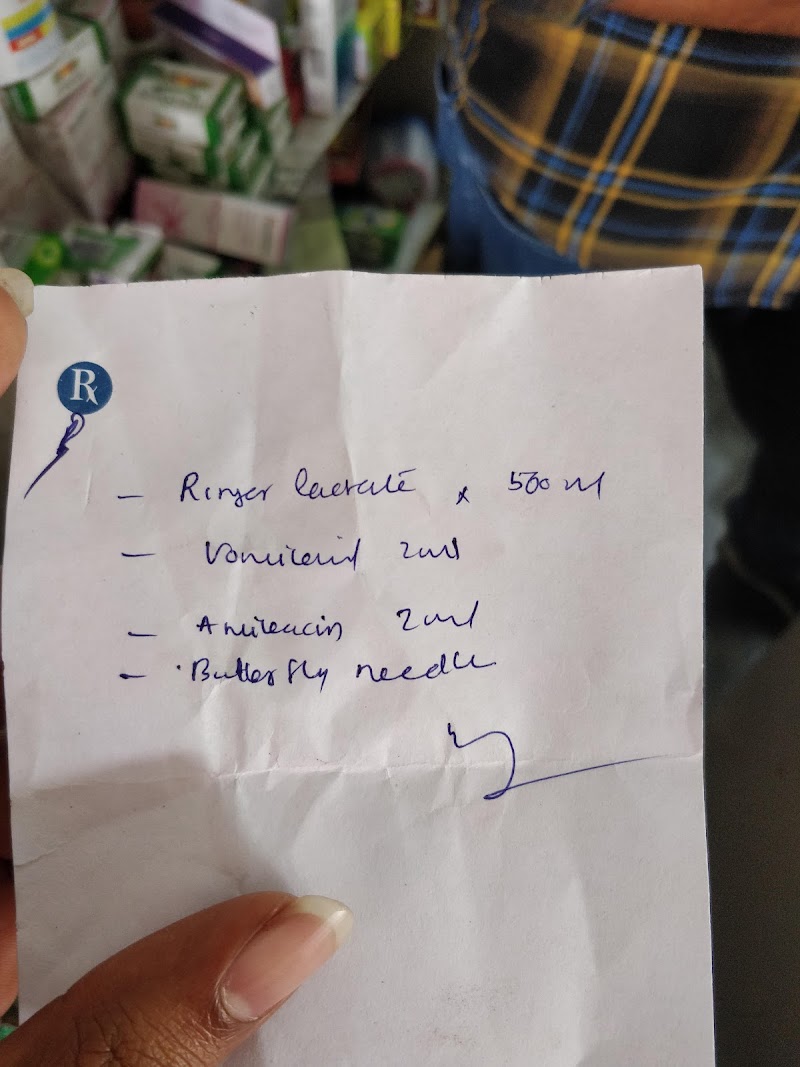 Rx
- Ringer lactate x 500 ml
- 2ml
- Amikacin 2ml
- Butterfly needle